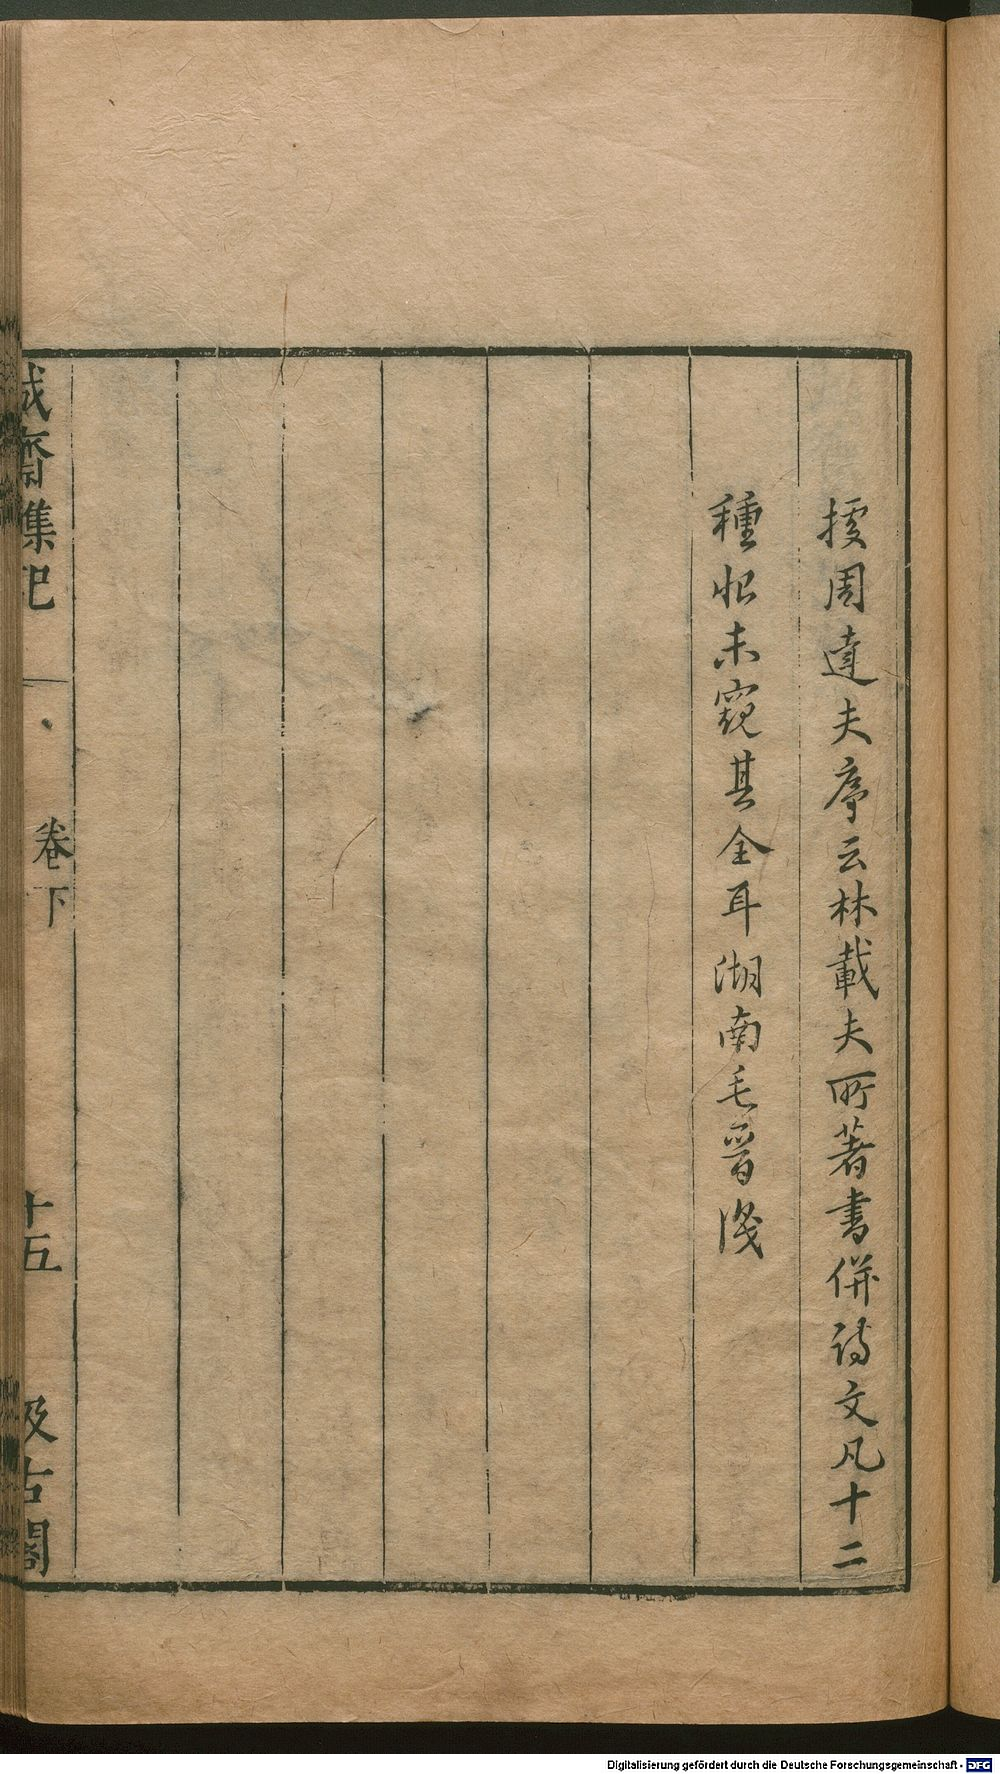 據周達夫序云林載夫所著書併詩文凡十二
種惜未窺其全耳湖南毛晉識
誠齋集記
卷下
十五
汲古閣
Digitalisierung gefördert durch die Deutsche Forschungsgemeinschaft - DFG